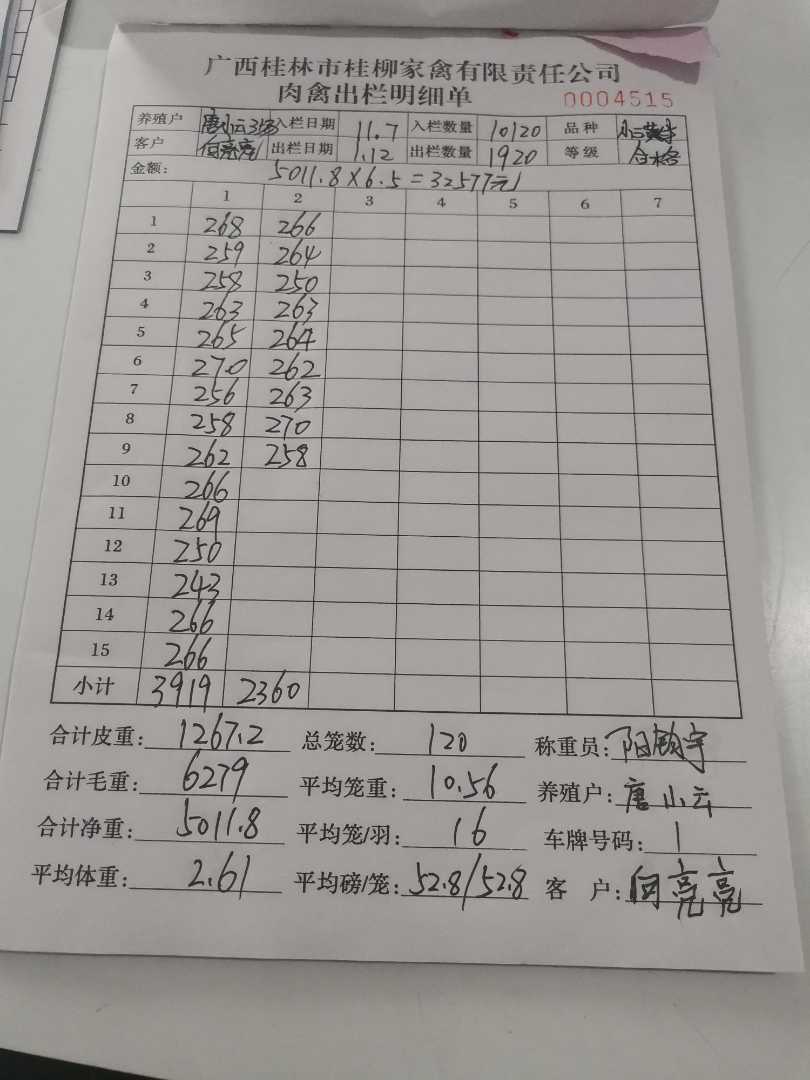 广西桂林市桂柳家禽有限责任公司
肉禽出栏明细单 0004515
养殖户 唐小云 入栏日期 11.7 入栏数量 10120 品种
客户 何亮亮 出栏日期 1.12 出栏数量 1920 等级 合格
金额: 5011.8×6.5=32577元
1 2 3 4 5 6 7
1 268 266
2 259 264
3 258 250
4 263 263
5 265 264
6 270 262
7 256 263
8 258 270
9 262 258
10 266
11 269
12 250
13 243
14 266
15 266
小计 3919 2360
合计皮重: 1267.2 总笼数: 120 称重员:
合计毛重: 6279 平均笼重: 10.56 养殖户: 唐小云
合计净重: 5011.8 平均笼/羽: 16 车牌号码: 1
平均体重: 2.61 平均磅/笼: 52.8/52.8 客 户: 何亮亮